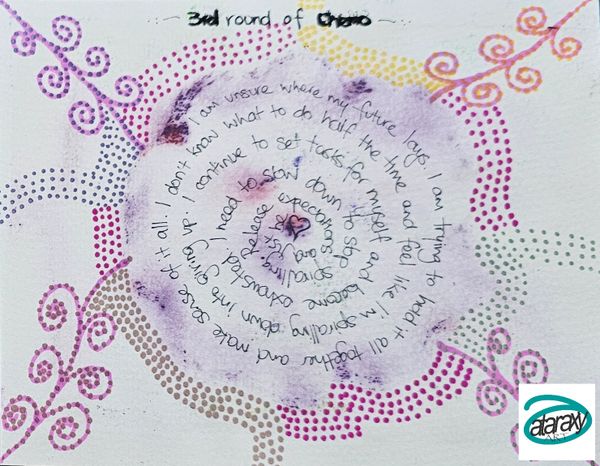 3rd round of Chemo
I am unsure where my future lays. I am trying to hold it all together and make sense of it all. I don't know what to do half the time and feel like I'm spiralling down into giving up. I continue to set tasks for myself and become exhausted. I need to slow down to stop spiralling. Release expectations and just be
ataraxy
ART